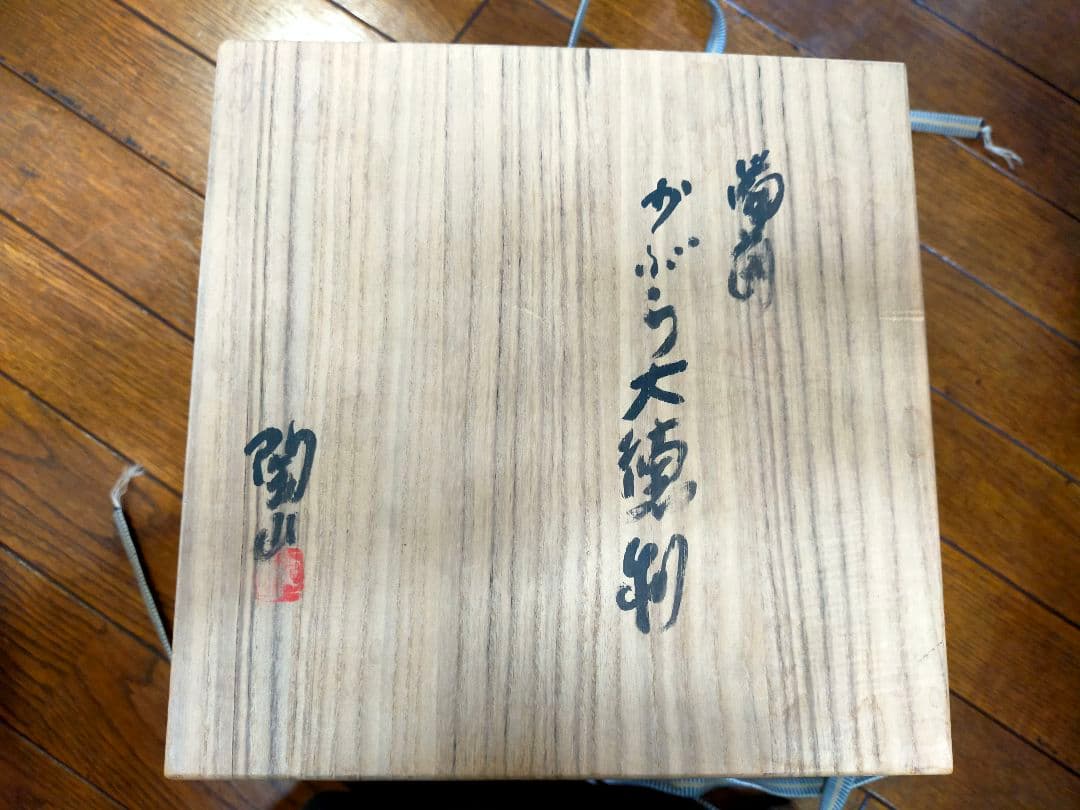 備前
かぶら大徳利
陶山